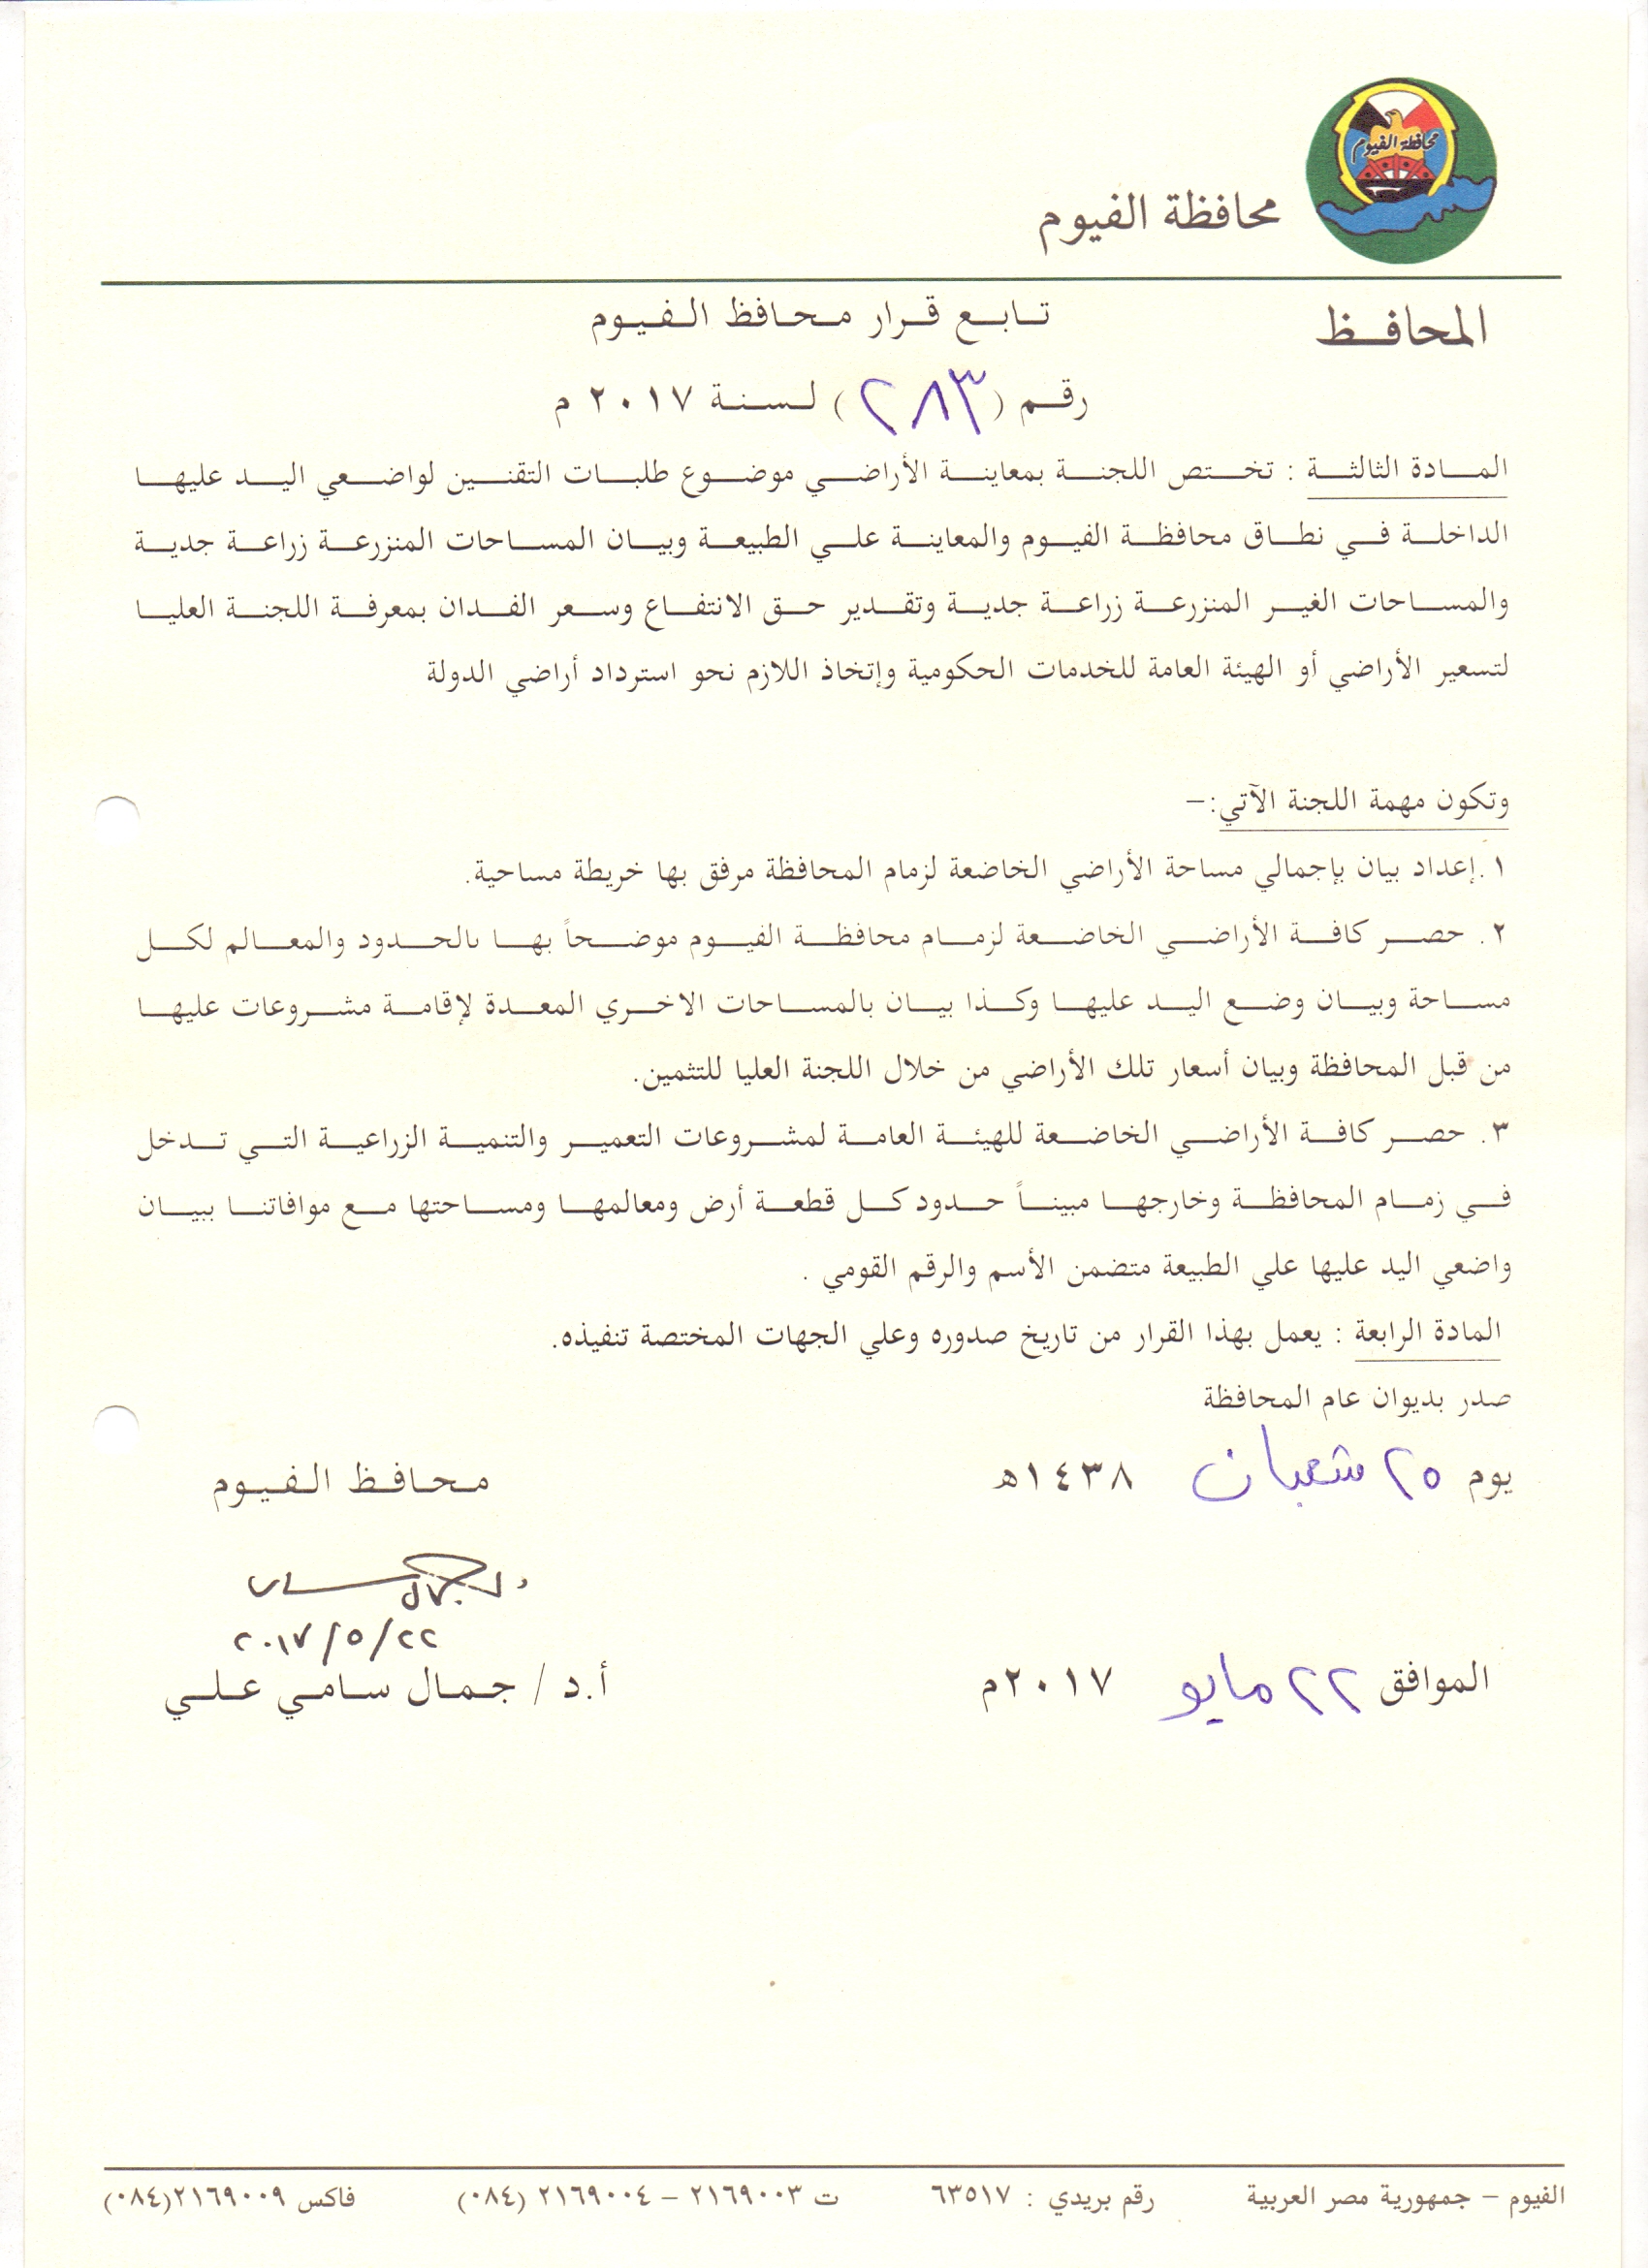 محافظة الفيوم
محافظة الفيوم
المحافظ
تابع قرار محافظ الفيوم
رقم (٢٨٣) لسنة ٢٠١٧ م
المادة الثالثة : تختص اللجنة بمعاينة الأراضي موضوع طلبات التقنين لواضعي اليد عليها
الداخلة في نطاق محافظة الفيوم والمعاينة علي الطبيعة وبيان المساحات المنزرعة زراعة جدية
والمساحات الغير المنزرعة زراعة جدية وتقدير حق الانتفاع وسعر الفدان بمعرفة اللجنة العليا
لتسعير الأراضي أو الهيئة العامة للخدمات الحكومية وإتخاذ اللازم نحو استرداد أراضي الدولة
وتكون مهمة اللجنة الآتي:–
١.إعداد بيان بإجمالي مساحة الأراضي الخاضعة لزمام المحافظة مرفق بها خريطة مساحية.
٢. حصر كافة الأراضي الخاضعة لزمام محافظة الفيوم موضحاً بها بالحدود والمعالم لكل
مساحة وبيان وضع اليد عليها وكذا بيان بالمساحات الاخري المعدة لإقامة مشروعات عليها
من قبل المحافظة وبيان أسعار تلك الأراضي من خلال اللجنة العليا للتثمين.
٣. حصر كافة الأراضي الخاضعة للهيئة العامة لمشروعات التعمير والتنمية الزراعية التي تدخل
في زمام المحافظة وخارجها مبيناً حدود كل قطعة أرض ومعالمها ومساحتها مع موافاتنا ببيان
واضعي اليد عليها علي الطبيعة متضمن الأسم والرقم القومي .
المادة الرابعة : يعمل بهذا القرار من تاريخ صدوره وعلي الجهات المختصة تنفيذه.
صدر بديوان عام المحافظة
يوم ٢٥ شعبان ١٤٣٨هـ
محافظ الفيوم
٢٠١٧/٥/٢٢
الموافق ٢٢ مايو ٢٠١٧م
أ.د / جمال سامي علي
الفيوم – جمهورية مصر العربية رقم بريدي : ٦٣٥١٧ ت ٢١٦٩٠٠٣ – ٢١٦٩٠٠٤ (٠٨٤) فاكس ٢١٦٩٠٠٩(٠٨٤)